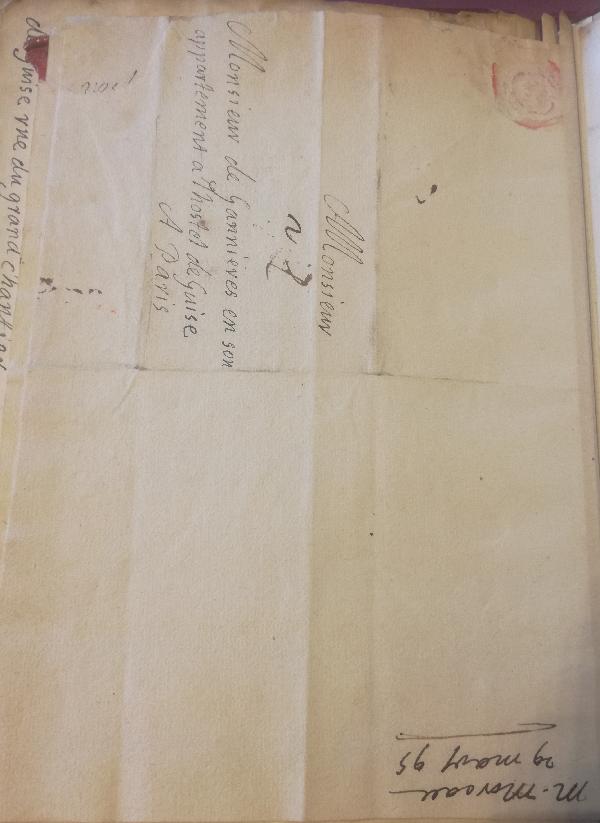 A Monsieur
Monsieur de Gannieres en son
appartement a l'hostel de Guise
A Paris
de guise rue du grand chantier
M. Moreau
29 mars 95